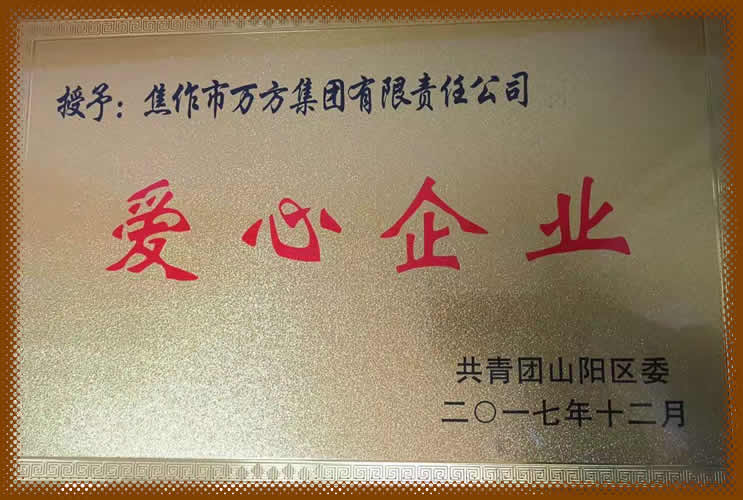 授予：焦作市万方集团有限责任公司
爱心企业
共青团山阳区委
二〇一七年十二月